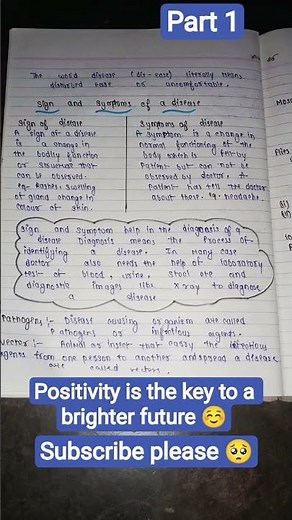 Part 1
The word disease (dis-ease) literally means
disturbed ease or uncomfortable.
Sign and Symptoms of a disease
Sign of disease
A sign of a disease
is a change in
the bodily function
or structure that
can be observed.
eg- Rashes, swelling
of gland change in
colour of skin.
Symptoms of disease
A symptom is a change in
normal functioning of the
body which is felt by
Patient but can not be
observed by doctor. A
Patient has tell the doctor
about these. eg- headache.
Sign and symptom help in the diagnosis of a
disease Diagnosis means the Process of
identifying a disease. In many case
doctor also needs the help of laboratory
test of blood, urine, stool etc and
diagnostic images like X ray to diagnose
a disease
Pathogens :- Disease causing organism are called
Pathogens or infectious agents.
vector :- Animal or insect that carry the infectious
agents from one person to another and spread a disease
are called vector.
Positivity is the key to a
brighter future ☺️
Subscribe please 🥺